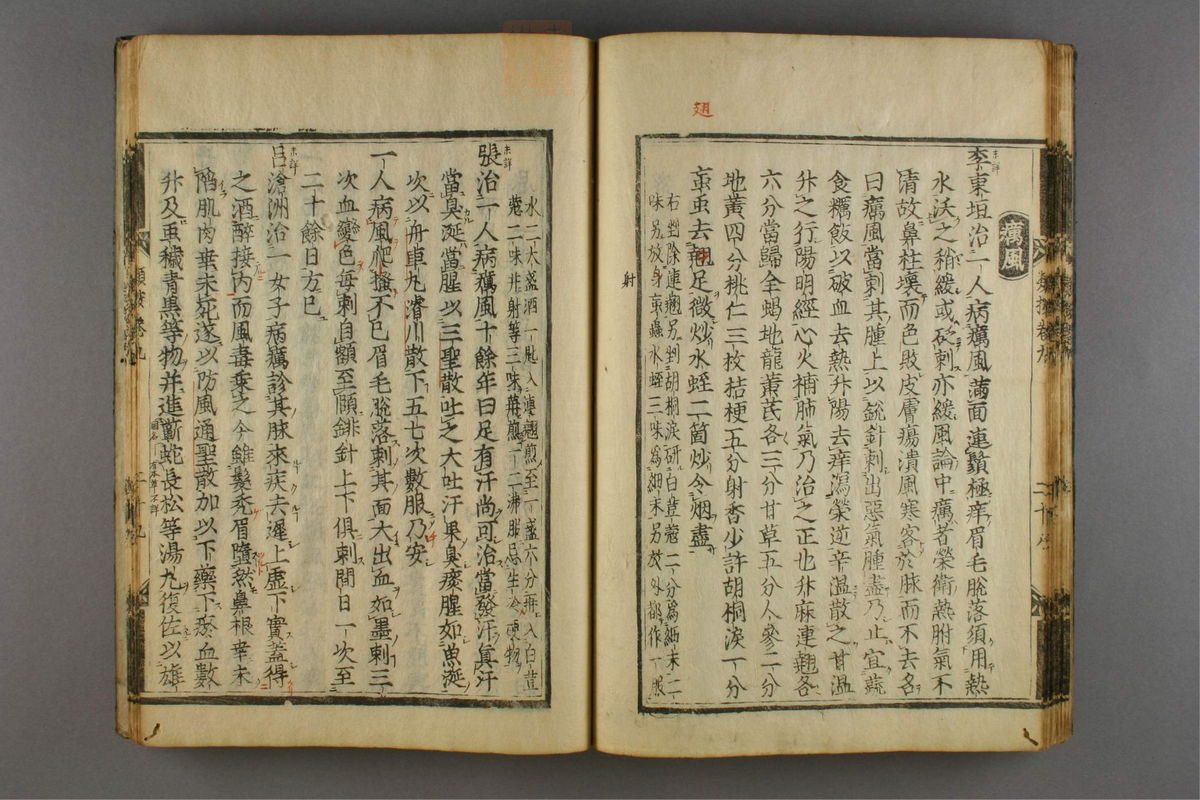 翅
癘風
李東垣治一人病癘風滿面連鬚極痒眉毛脫落須用熱
水沃之稍緩或砭刺亦緩風論中癘者榮衛熱胕氣不
清故鼻柱壞而色敗皮膚瘍潰風寒客於脉而不去名
曰癘風當刺其腫上以銳針刺出惡氣腫盡乃止宜蔬
食糲飯以破血去熱升陽去痒瀉榮逆辛溫散之甘溫
升之行陽明經心火補肺氣乃治之正也升麻連翹各
六分當歸全蝎地龍黃芪各三分甘草五分人參二分
地黃四分桃仁三枚桔梗五分射香少許胡桐淚一分
䖟虫去翅足微炒水蛭二箇炒令烟盡
右剉除連翹另剉胡桐淚研白荳蔻二分爲細末二
味另放麝䖟蟲水蛭三味爲細末另放外都作一服
射
水二大盞酒一匙入連翹煎至一盞六分再入白荳
蔻二味并射等三味再煎一二沸服忌生冷硬物
未詳
張治一人病癘風十餘年曰足有汗尚可治當發汗其汗
當臭涎當腥以三聖散吐之大吐汗果臭痰腥如魚涎
次以舟車丸濬川散下五七次數服乃安
一人病風爬搔不已眉毛脫落刺其面大出血如墨刺三
次血變色每刺自額至頤錐針上下俱刺間日一次至
二十餘日方已
未詳
呂滄洲治一女子病癘診其脉來疾去遲上虛下實蓋得
之酒醉接內而風毒乘之今雖髮禿眉墮然鼻根幸未
陷肌肉幸未死遂以防風通聖散加以下藥下瘀血數
升及虫穢青黑等物并進蘄蛇長松等湯丸復佐以雄